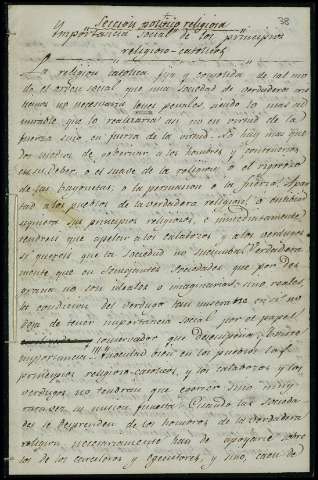 38
Seccion politico religiosa
Importancia social de los principios
religioso-catolicos
La religion catolica fija y consolida de tal mo
do el orden social que una sociedad de verdaderos cre
yentes no necesitaria leyes penales, siendo lo mas ad
mirable que lo realizaria asi no en virtud de la
fuerza sino en fuerza de la virtud. No hay mas que
dos medios de gobernar a los hombres y contenerlos
en su deber, o el suave de la religion o el riguroso
de las bayonetas; o la persuasion o la fuerza. Apar
tad a los pueblos de la verdadera religion, o entibiad
siquiera sus principios religiosos, e inmediatamente
tendreis que apelar a los calabozos y a los verdugos
si quereis que la sociedad no sucumba. Verdadera
mente que en semejantes sociedades que por des
gracia no son ideales o imaginarias, sino reales,
la condicion del verdugo tan miserable en si no
deja de tener importancia social por el papel
conservador que desempeña. ¡Horrible
importancia!!! Inculcad bien en los pueblos los
principios religioso-catolicos, y los calabozos y los
verdugos no tendran que ejercer sino muy
rara vez su mision funesta. Cuando las socieda
des se desprenden de los hombros de la verdadera
religion necesariamente han de apoyarse sobre
los de los carceleros y ejecutores, y sino, caen de